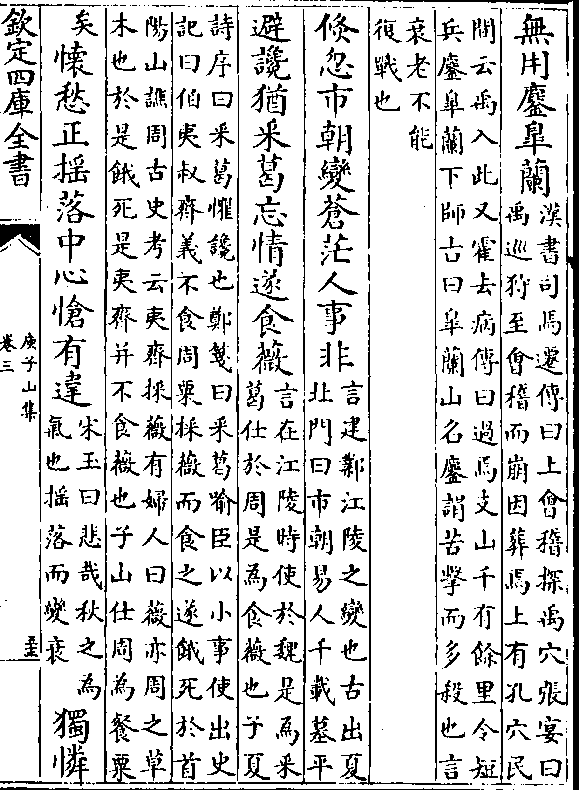 無用鏖臯蘭漢書司馬遷傳曰上會稽探禹穴張宴曰
禹巡狩至會稽而崩因葬焉上有孔穴民
間云禹入此又霍去病傳曰過焉支山千有餘里令短
兵鏖臯蘭下師古曰臯蘭山名鏖謂苦擊而多殺也言
衰老不能
復戰也
倏忽市朝變蒼茫人事非言建鄴江陵之變也古出夏
北門曰市朝易人千載墓平
避讒猶采葛忘情遂食薇言在江陵時使於魏是爲采
葛仕於周是為食薇也子夏
詩序曰采葛懼讒也鄭箋曰采葛喻臣以小事使出史
記曰伯夷叔齊義不食周粟採薇而食之遂餓死於首
陽山譙周古史考云夷齊採薇有婦人曰薇亦周之草
木也於是餓死是夷齊并不食薇也子山仕周為餐粟
矣 懷愁正揺落中心愴有違宋玉曰悲哉秋之為
氣也揺落而變衰 獨憐
欽定四庫全書
庾子山集
卷三